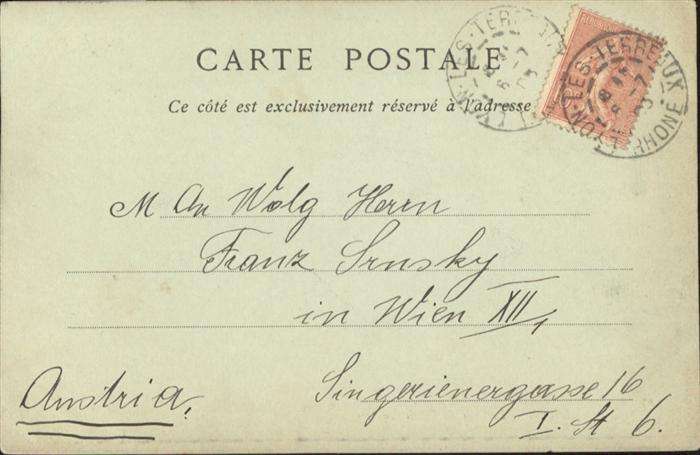 CARTE POSTALE
Ce côté est exclusivement réservé à l'adresse
LYON-LES-TERREAUX RHONE
M An Wolg Herrn
Franz Srnsky
in Wien XII,
Singerienergasse 16
I. St 6.
Austria,